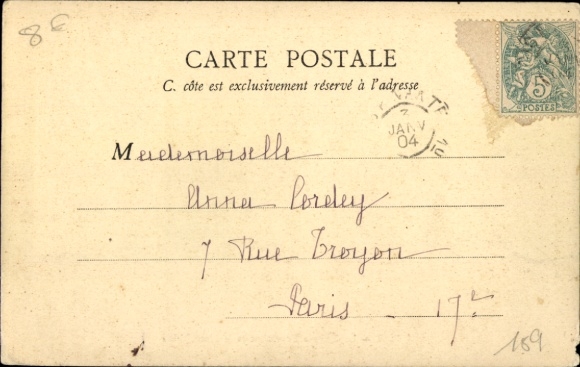 8 €
CARTE POSTALE
C. côte est exclusivement réservé à l'adresse
5c
POSTES
3
JANV
04
Mademoiselle
Anna Cordey
7 Rue Troyon
Paris - 17e
159